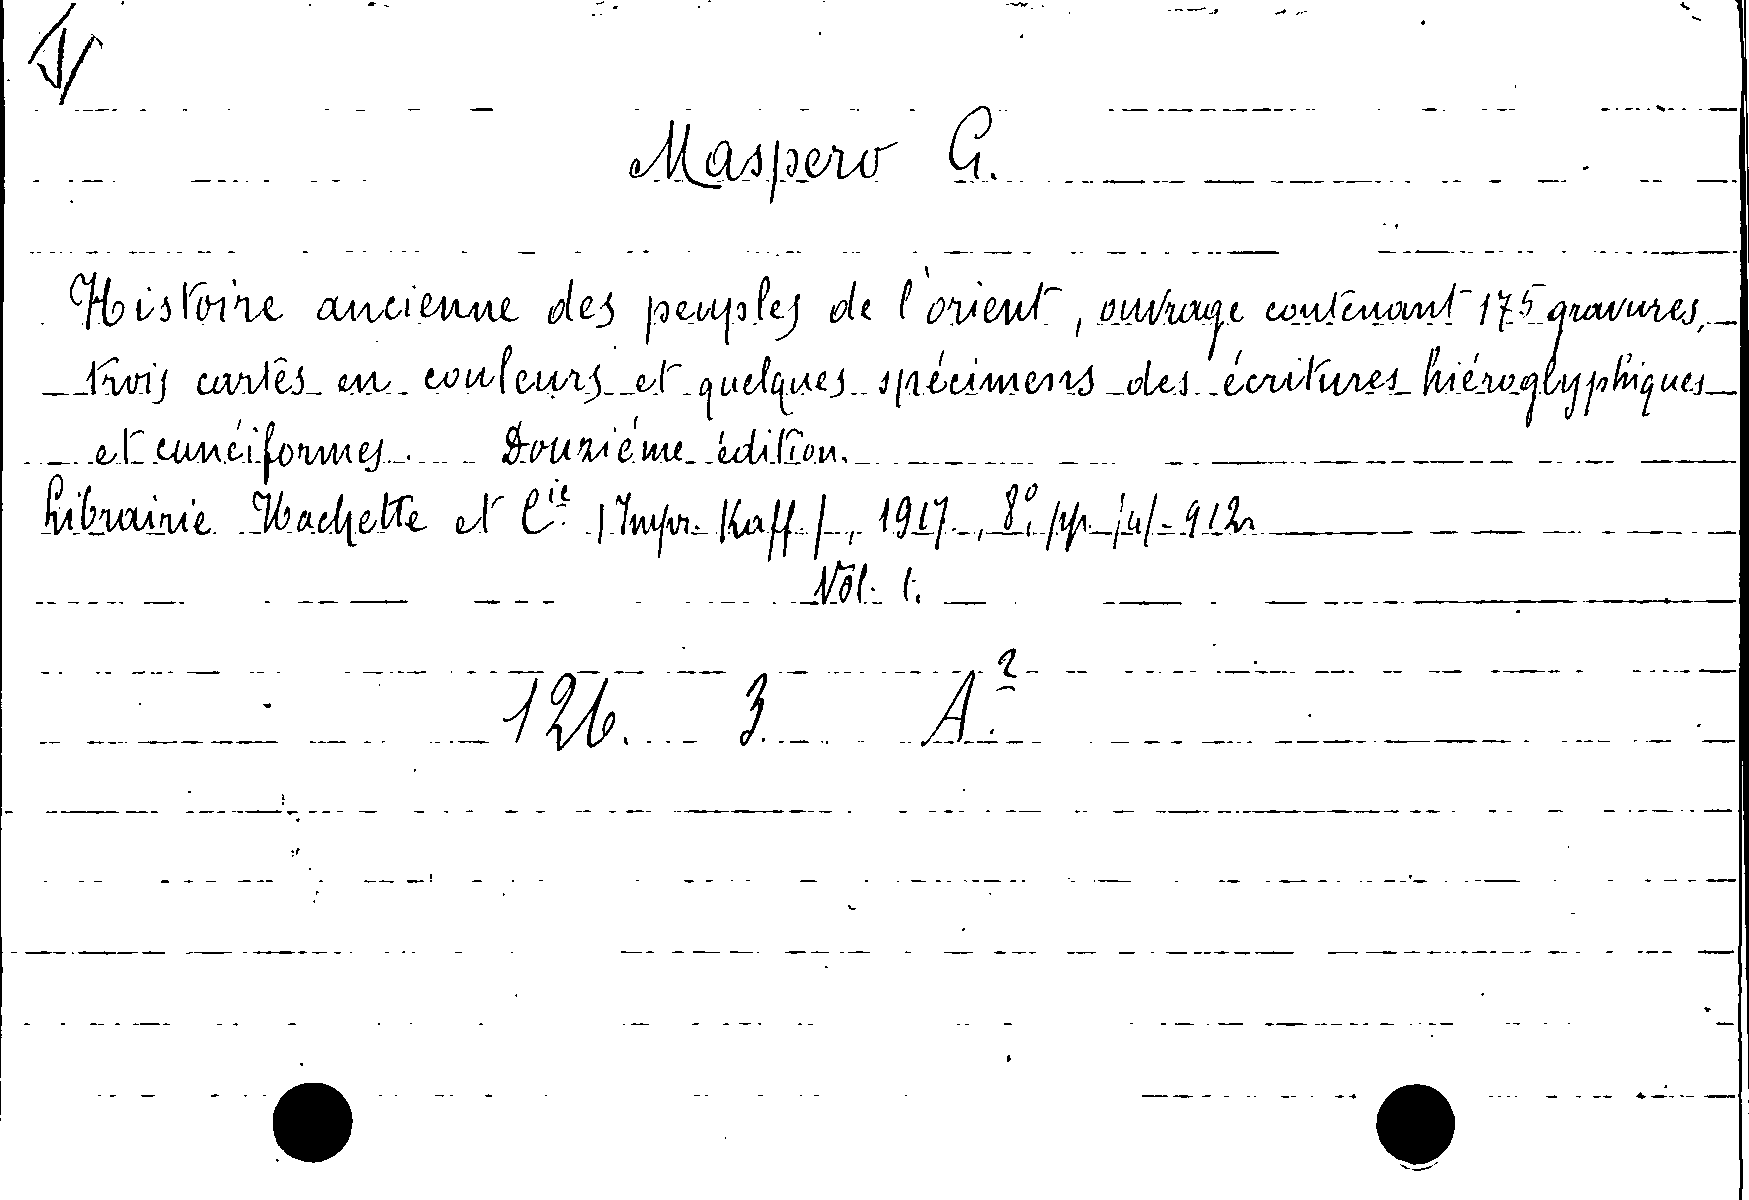 Maspero G.
Histoire ancienne des peuples de l'orient, ouvrage contenant 175 gravures,
trois cartes en couleurs et quelques spécimens des écritures hiéroglyphiques
et cunéiformes. Douzième édition.
Librairie Hachette et Cie. /Impr. Kaff/, 1917, 8°, pp. /4/-912.
Vol. 1.
126. 3. A.2